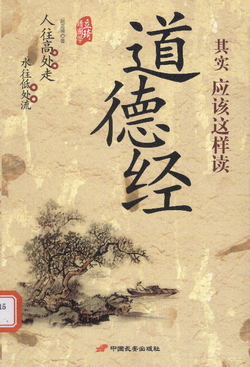 其实 应该这样读
道德经
人往高处走
水往低处流
中国长安出版社
15